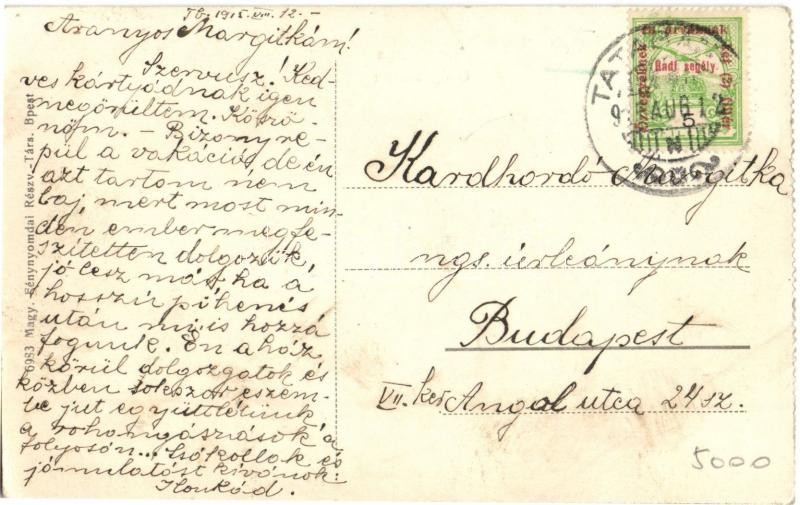 Tb. 1915. VIII. 12.-
Aranyos Margitkám!
Szervusz! Ked-
ves kártyádnak igen
megörültem. Köszö-
nöm. - Bizony re-
pül a vakáció, de én
azt tartom nem
baj, mert most min-
den ember megfe-
szitetten dolgozik,
jó lesz már, ha a
hosszú pihenés
után mi is hozzá
fogunk. Én a ház
körül dolgozgatok és
közben sokszor eszem-
be jut együttlétünk
a rohamgászások a
folyosón... Csókollak és
jó mulatást kívánok:
Ilonkád.
6983 Magy. Fénynyomdai Részv.-Társ. Bpest
özvegyeknek
és árváknak
két (2) fillér
Hadi segély
TAT
AUG 12
5
Kardhordó Margitka
ngs. úrleánynak
Budapest
VII. ker Angol utca 24 sz.
5000